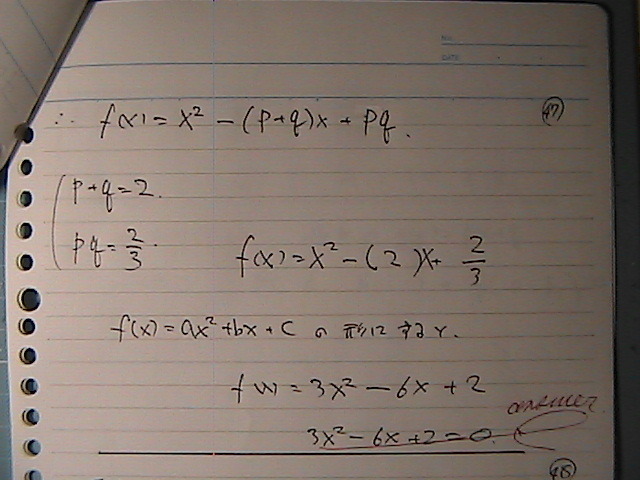 NO.
DATE
∴ f(x) = x² - (p+q)x + pq.
47
p+q=2.
pq = 2/3.
f(x) = x² - (2)x + 2/3
f(x) = ax² + bx + c の形にすると.
f(x) = 3x² - 6x + 2
answer
3x² - 6x + 2 = 0.
48